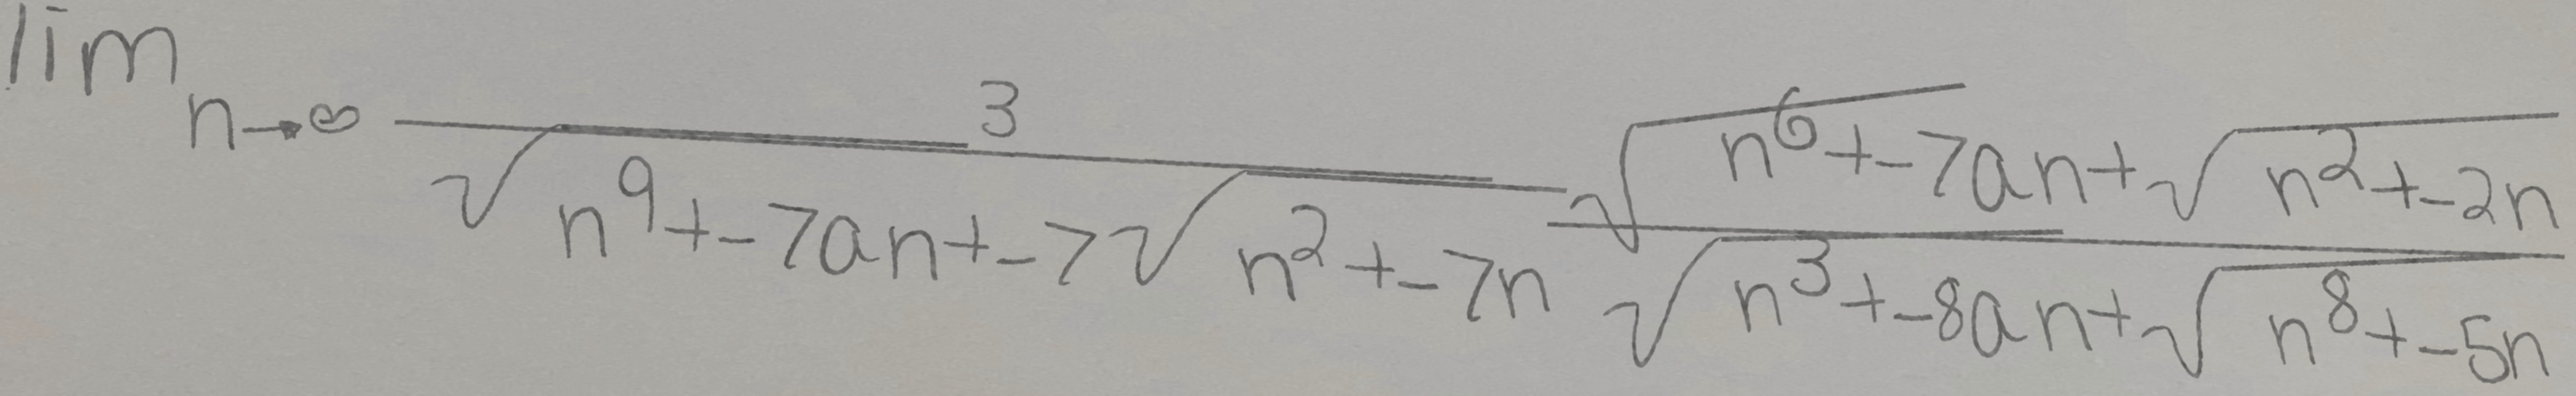 \lim_{n \to \infty} \frac{3}{\sqrt{n^9 + -7an} + -7\sqrt{n^2 + -7n}} \frac{\sqrt{n^6 + -7an} + \sqrt{n^2 + -2n}}{\sqrt{n^3 + -8an} + \sqrt{n^8 + -5n}}